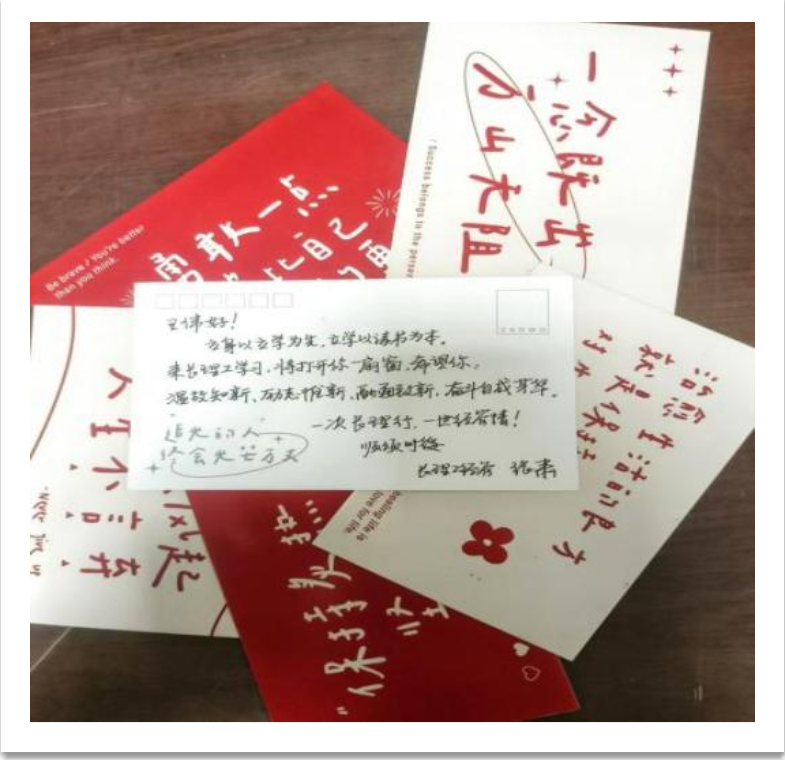 一念既出
万山无阻
/ Success belongs to the perse
勇敢一点
比自己
Be brave / You're better
than you think.
王伟好！
立身以立学为先，立学以读书为本。
来长理工学习，将打开你一扇窗，希望你：
温故知新，励志惟新，融通致新，奋斗自我芳华。
一次长理行，一世经管情！
顺颂时绥
长理经管
追光的人
终会光芒万丈
治愈生活的良方
就是保持
对
healing life is
love for life.
风起
人生不言弃
"保持